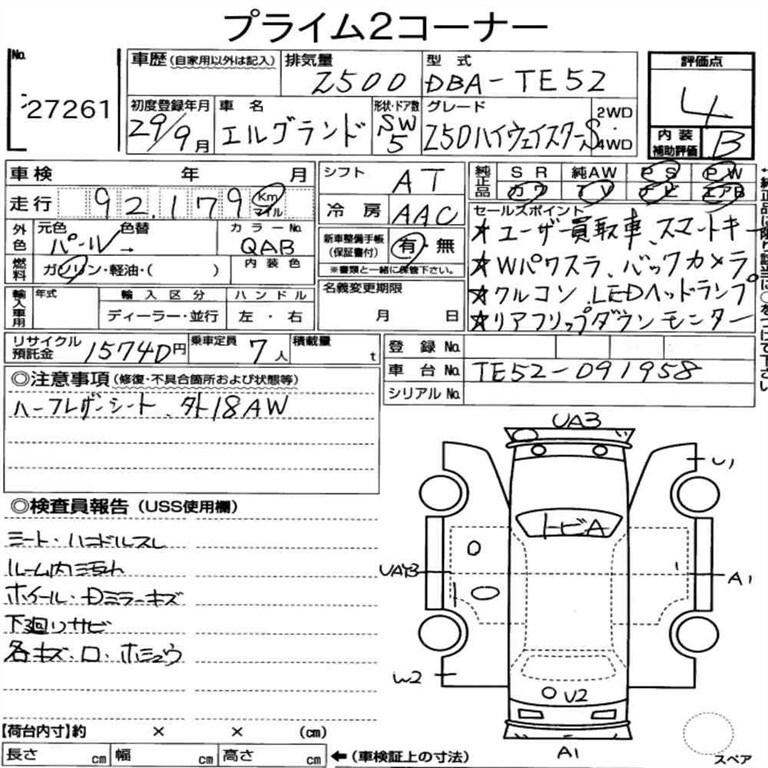 プライム2コーナー
No.
27261
車歴(自家用以外は記入)
排気量
2500
型式
DBA-TE52
評価点
4
内装
補助評価
B
初度登録年月
29年9月
車名
エルグランド
形状・ドア数
SW
5
グレード
250ハイウェイスターS
2WD
4WD
車検 年 月
走行
92,179
Km
マイル
シフト
AT
冷房
AAC
純正品
SR
純AW
PS
PW
カワ
TV
ナビ
エアB
外色
元色
色替
パール→
カラーNo.
QAB
燃料
ガソリン・軽油・( )
内装色
新車整備手帳
(保証書付)
有・無
※書類と一緒に保管下さい。
セールスポイント
★ユーザー買取車、スマートキー
★Wパワスラ、バックカメラ
★クルコン、LEDヘッドランプ
★リアフリップダウンモニター
輸入車用
年式
輸入区分
ハンドル
ディーラー・並行
左・右
名義変更期限
月 日
リサイクル
預託金
15740円
乗車定員
7人
積載量
t
登録No.
車台No.
TE52-091958
シリアルNo.
◎注意事項(修復・不具合箇所および状態等)
ハーフレザーシート、社外18AW
◎検査員報告(USS使用欄)
シート・ハンドルスレ
ルーム内汚れ
ホイール・Dミラーキズ
下廻りサビ
各キズ・凹・ホシュウ
UA3
トビA
U1
A1
W2
U2
A1
スペア
【荷台内寸】約 × × (cm)
長さ cm
幅 cm
高さ cm
←(車検証上の寸法)